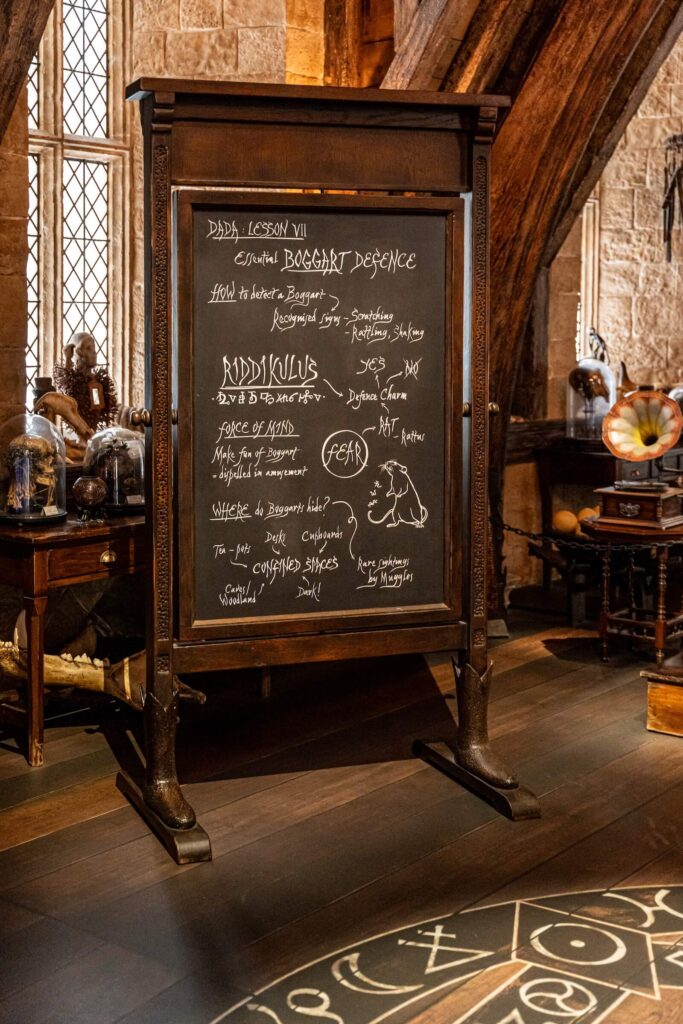 DADA: LESSON VII
Essential BOGGART DEFENCE
HOW to detect a Boggart
Recognised signs - Scratching
- Rattling, Shaking
YES NO
RIDDIKULUS
Defence Charm
FORCE OF MIND
RAT
Rattus
Make fun of Boggart
- dispelled in amusement
FEAR
WHERE do Boggarts hide?
Desks Cupboards
Tea-pots
CONFINED SPACES
Rare sightings
by Muggles
Caves/
Woodland
Dark!